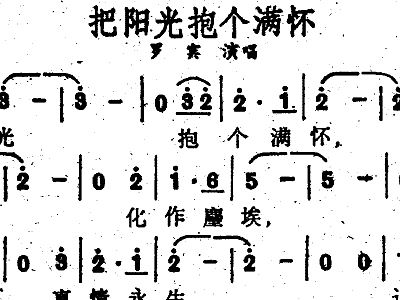 把阳光抱个满怀
罗 宾 演唱
3 － | 3 － | 0 3 2 | 2 · 1 | 2 － | 2
光 抱 个 满 怀，
| 2 － | 0 2 | 1 · 6 | 5 － | 5 － |
化 作 尘 埃，
| 0 3 | 2 · 1 | 2 － | 2 － | 0 0 |
真 情 永 生